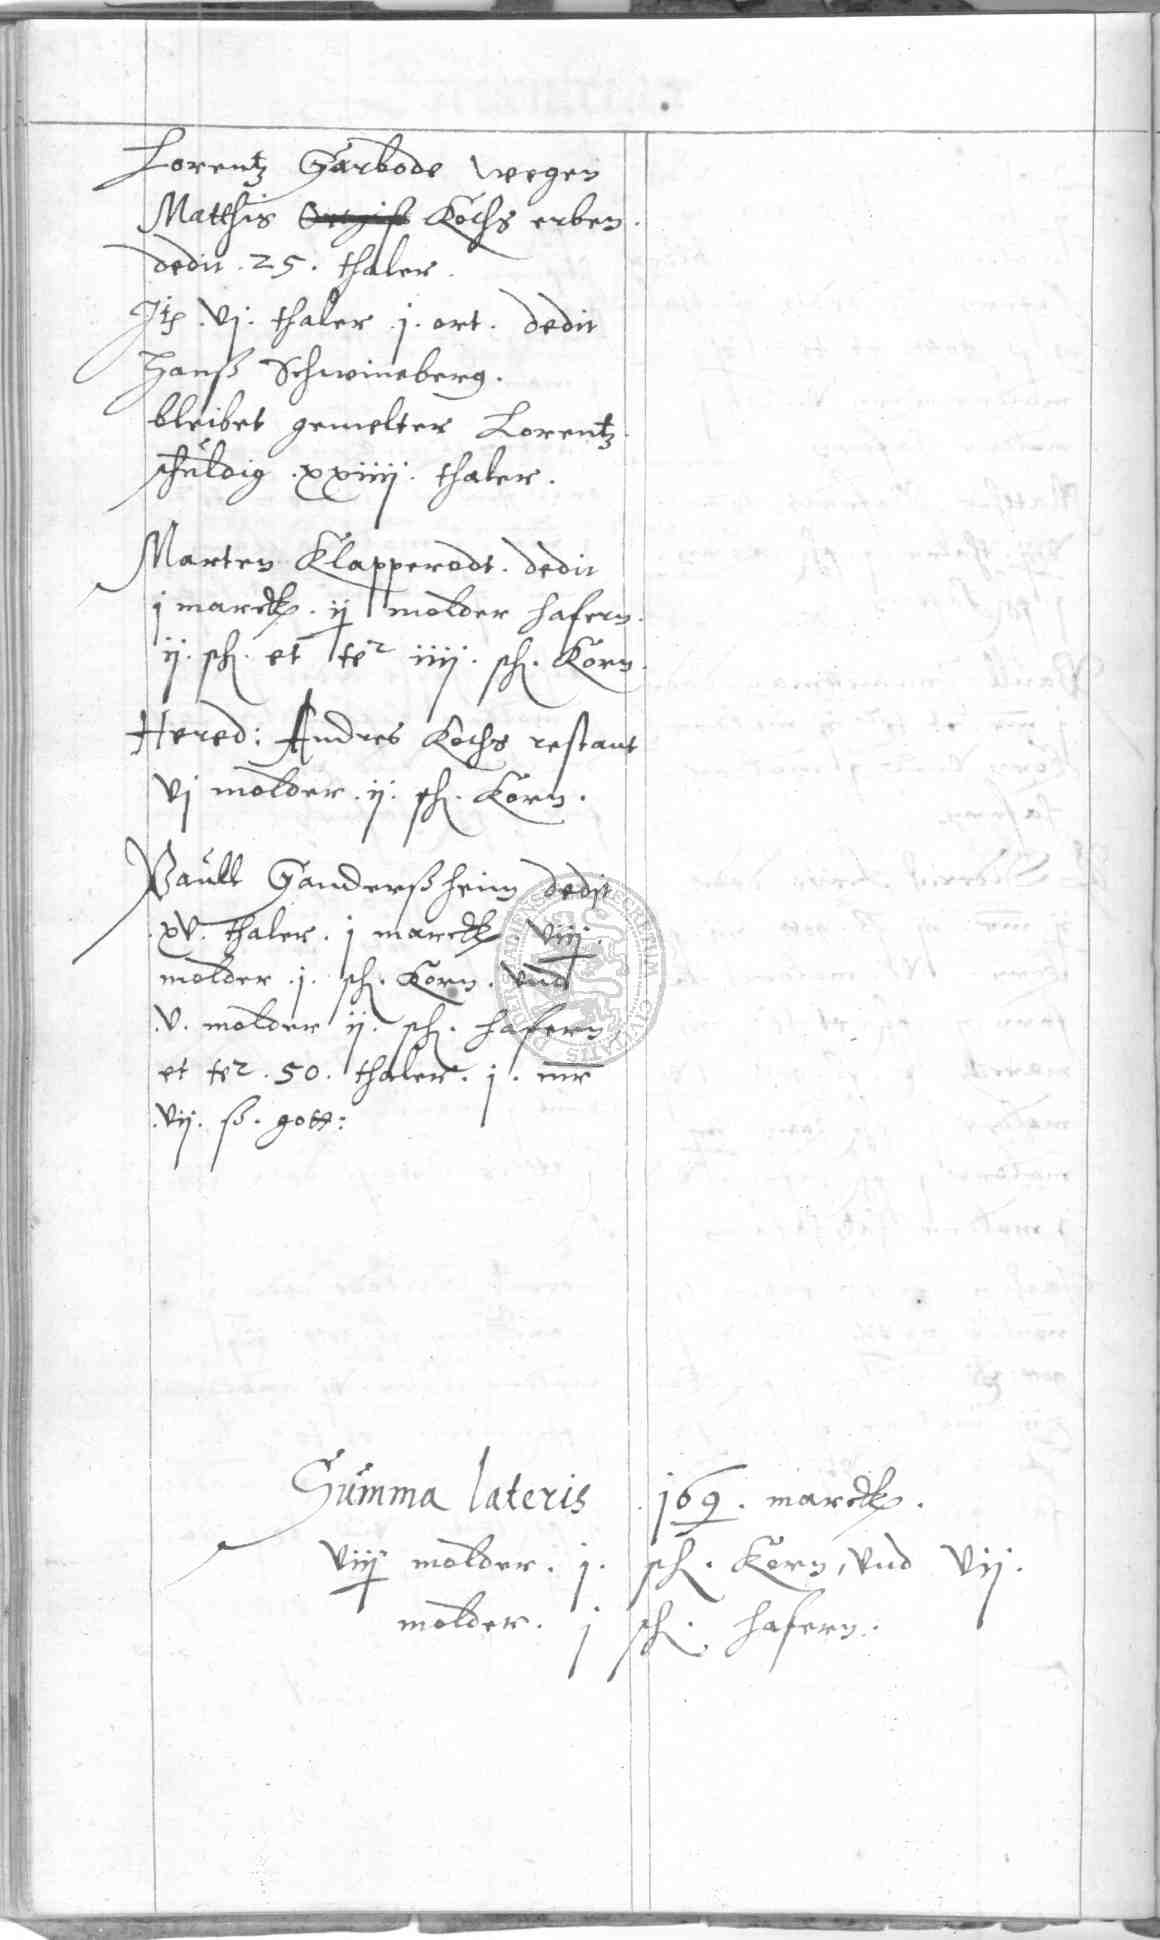 Lorentz Garbode wegen
Matthis Kochs erben.
dedit . 25 . thaler .
Itp . vj . thaler . j . ort . dedit
Hanß Schwineberg .
bleibet gemelter Lorentz
schuldig . xxiiij . thaler .
Marten Klapperodt . dedit
j marck . ij molder hafern .
ij . sch . et te2 iiij . sch . Korn .
Hered : Andres Kochs restant
vj molder . ij . sch . Korn .
Paull Ganderßheim dedit
. xv . thaler . j marck viij .
molder . j . sch . Korn . vnd
. v . molder ij . sch . hafern
et te2 . 50 . thaler . j . mr
. vij . ß . gott :
Summa lateris . 169 . marck .
viij molder . j . sch . Korn , vnd vij .
molder . j sch . hafern .
SECRETUM CIVITATIS